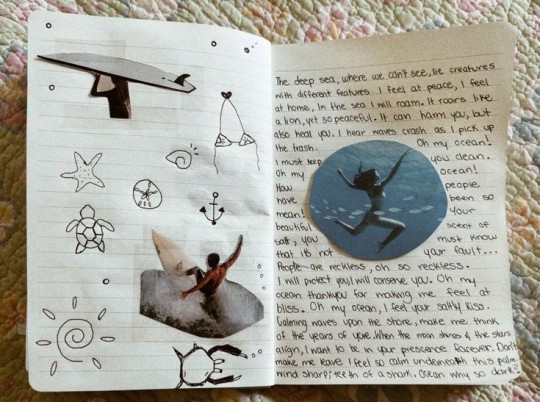 The deep sea, where we can't see, lie creatures
with different features. I feel at peace, I feel
at home, In the sea I will roam. It roars like
a lion, yet so peaceful. It can harm you, but
also heal you. I hear waves crash as I pick up
the trash. Oh my ocean!
I must keep you clean.
Oh my ocean!
How people
have been so
mean! Your
beautiful scent of
salt, you must know
that it's not your fault...
People are reckless, oh so reckless.
I will protect you, I will conserve you. Oh my
ocean thankyou for making me feel at
bliss. Oh my ocean, I feel your salty kiss.
Calming waves upon the shore, make me think
of the years of yore. When the moon shines & the stars
align, I want to be in your prescence forever. Don't
make me leave I feel so calm underneath this palm.
mind sharp; teeth of a shark. Ocean why so dark?